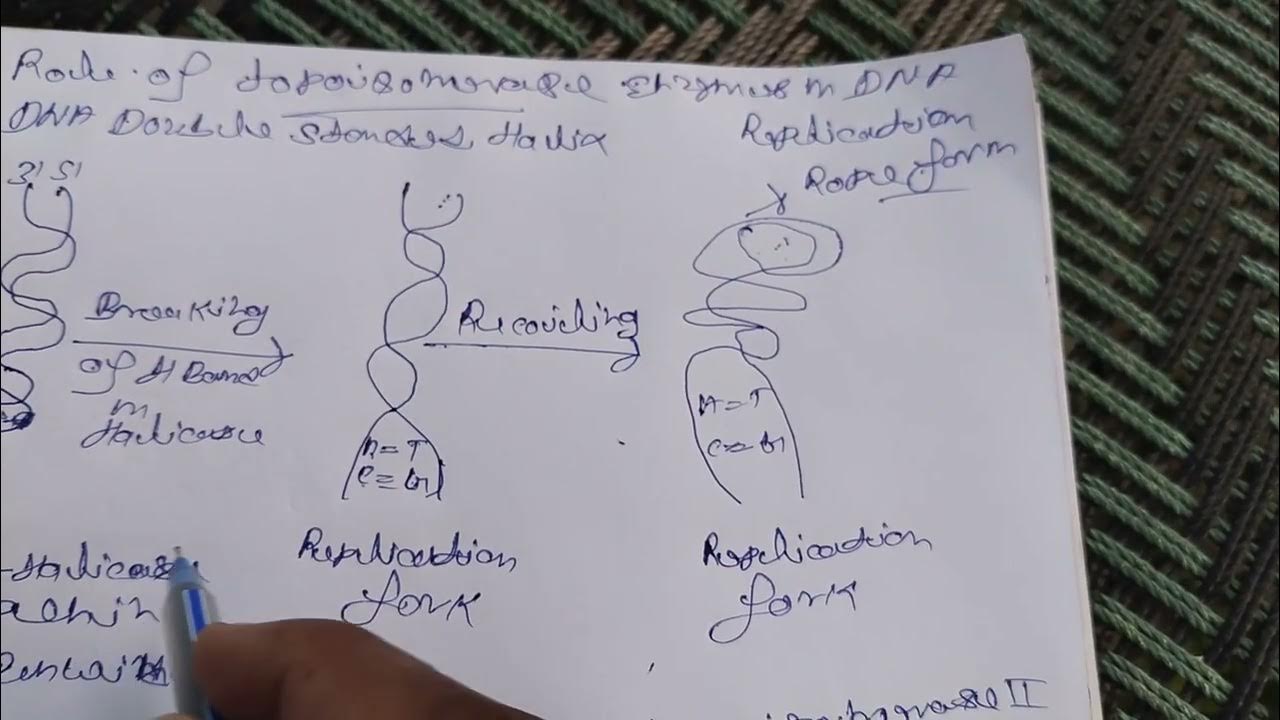 Role of topoisomerase Enzymes in DNA
Replication
DNA Double strands Helix
Rope form
3' 5'
Breaking
of H Bond
in
Helicase
Recoiling
A=T
C≡G
A=T
C=G
Replication
fork
Replication
fork
Helicase
II